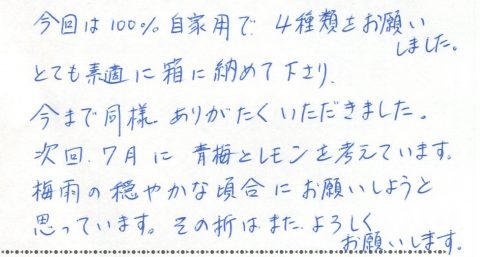 今回は100%自家用で、4種類をお願い
しました。
とても素適に箱に納めて下さり、
今まで同様、ありがたくいただきました。
次回、7月に青梅とレモンを考えています。
梅雨の穏やかな頃合にお願いしようと
思っています。その折はまた、よろしく
お願いします。